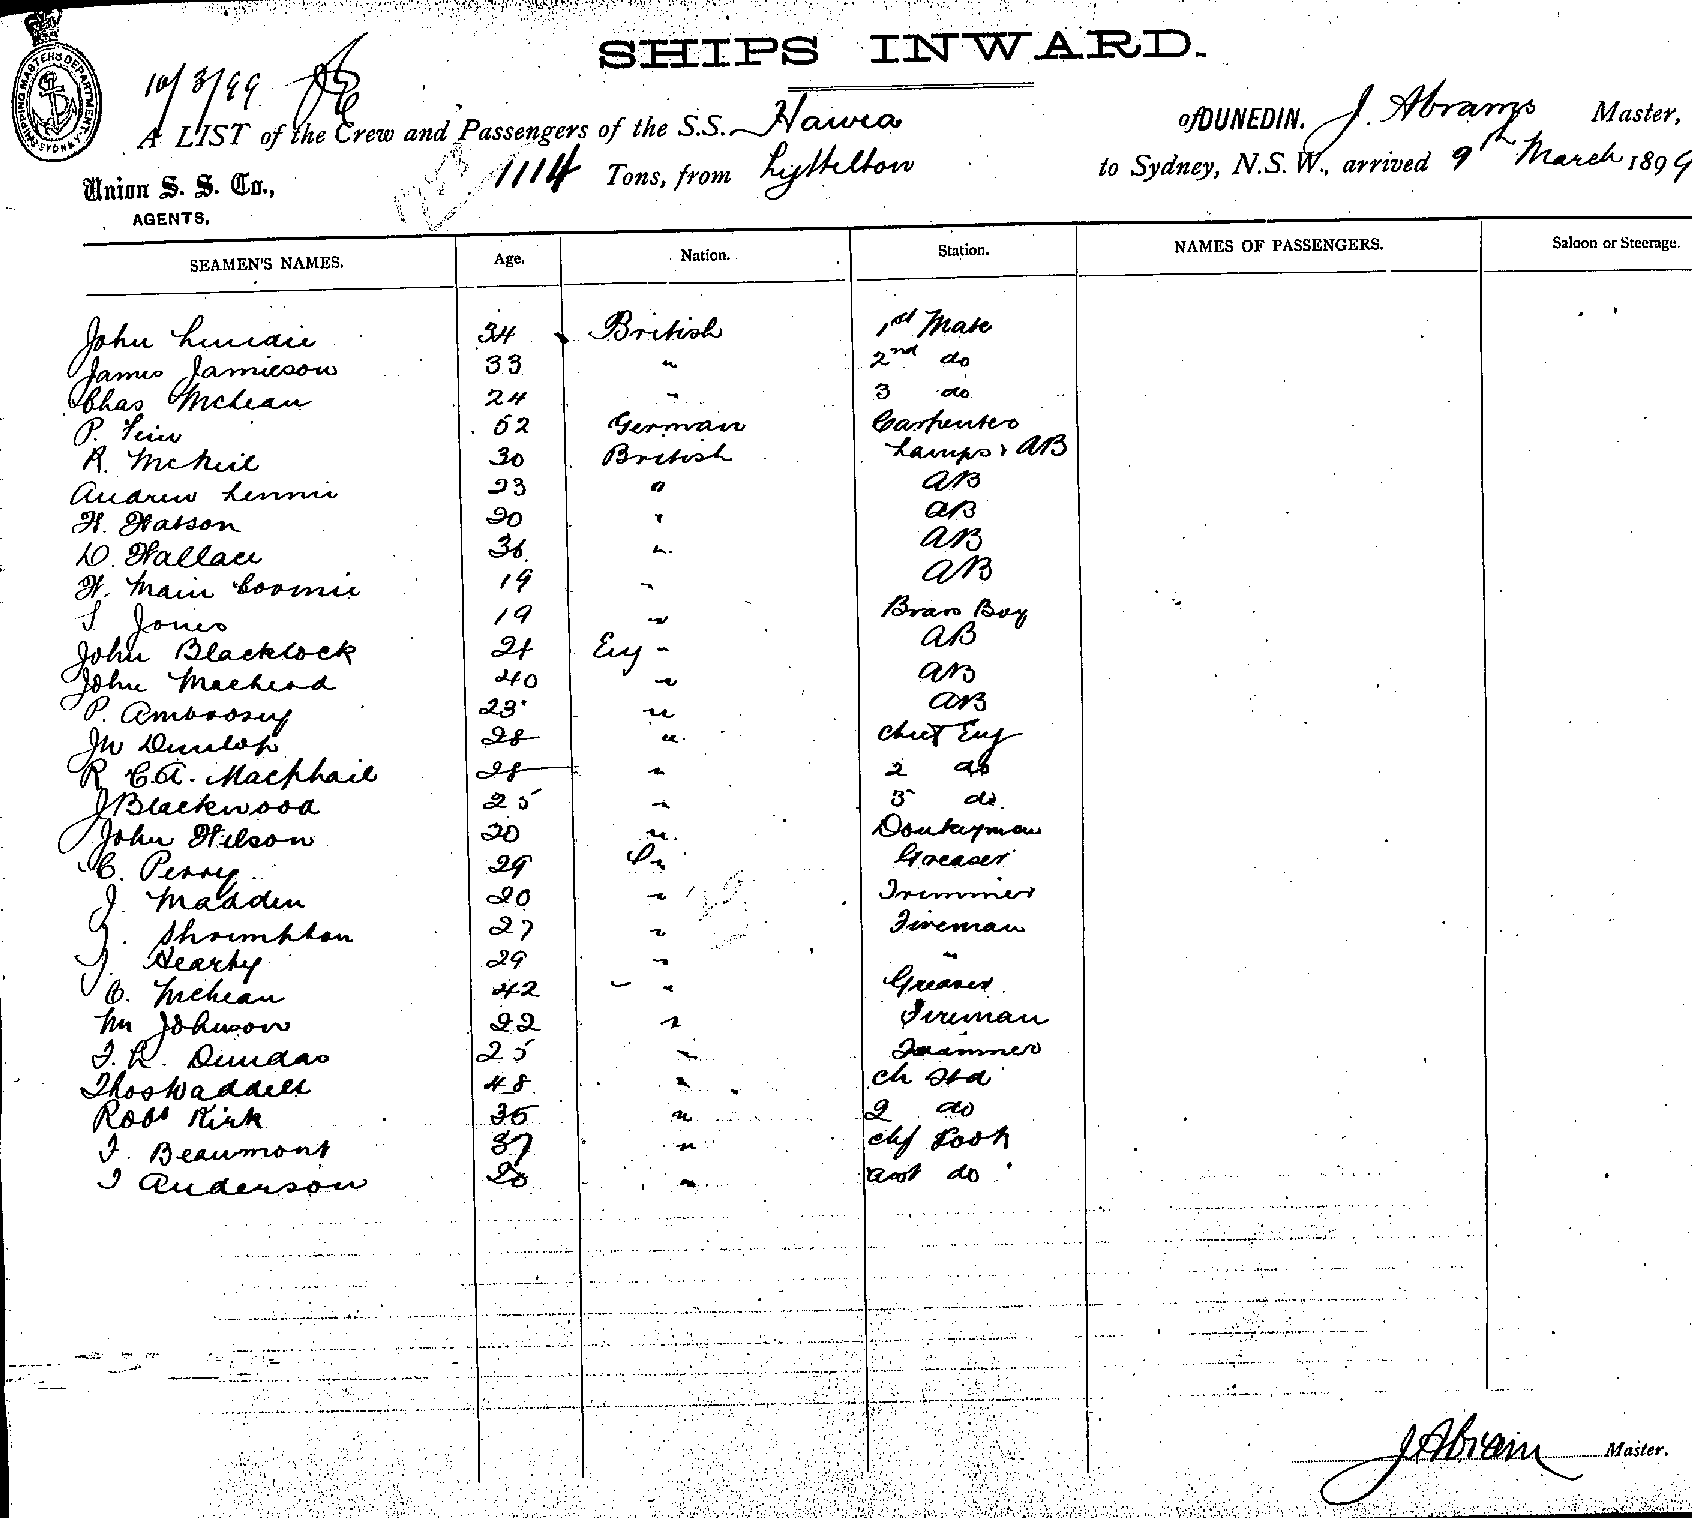 SHIPS INWARD.
SHIPPING MASTERS DEPARTMENT. SYDNEY
10/3/99
A LIST of the Crew and Passengers of the S.S. Hawea of DUNEDIN. J. Abrams Master,
1114 Tons, from Lyttelton to Sydney, N.S.W., arrived 9th March 1899
Union S. S. Co.,
AGENTS,
SEAMEN'S NAMES. Age. Nation. Station. NAMES OF PASSENGERS. Saloon or Steerage.
John 34 British 1st Mate
James Jamieson 33 " 2nd do
Chas McLean 24 " 3 do
P. 52 German Carpenter
R. McNeil 30 British Lamps & AB
Andrew Lennie 23 " AB
W. Watson 20 " AB
D. Wallace 36 " AB
W. Main 19 " AB
S. Jones 19 " Brass Boy
John Blacklock 21 " AB
John MacLeod 40 " AB
P. Ambrosey 23 " AB
Jn Dunlop 28 " Chief Eng
R C.A. Macphail 28 " 2 do
J Blackwood 25 " 3 do.
John Wilson 20 " Donkeyman
C. Perry 29 " Greaser
J. Madden 20 " Trimmer
J. Shrimpton 27 " Fireman
J. Hearty 29 " "
C. McLean 42 " Greaser
Wm Johnson 22 " Fireman
F. R. Dundas 25 " Trimmer
Thos Waddell 48 " Ch Std
Robt Kirk 35 " 2 do
F. Beaumont 37 " Chf Cook
J Anderson 20 " asst do
J Abram Master.